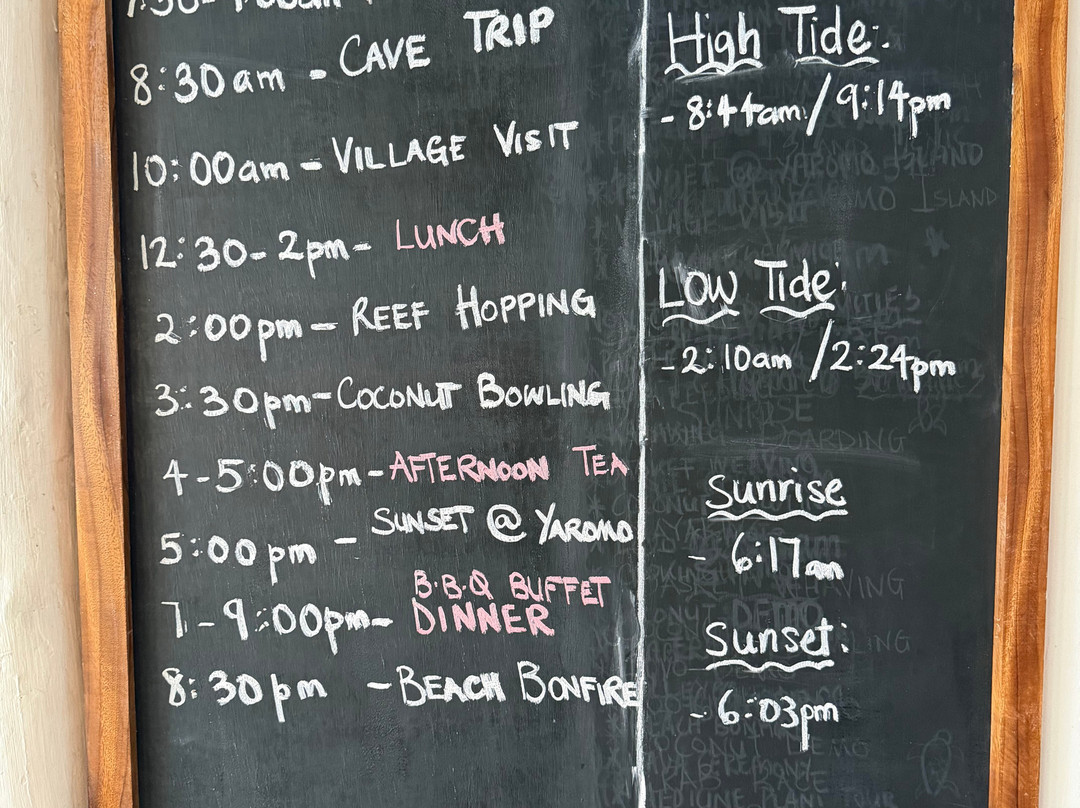 8:30am - CAVE TRIP
10:00am - VILLAGE VISIT
12:30 - 2pm - LUNCH
2:00pm - REEF HOPPING
3:30pm - COCONUT BOWLING
4 - 5:00pm - AFTERNOON TEA
5:00pm - SUNSET @ YAROMO
7 - 9:00pm - B.B.Q BUFFET
DINNER
8:30pm - BEACH BONFIRE
High Tide:
- 8:44am / 9:14pm
Low Tide:
- 2:10am / 2:24pm
Sunrise
- 6:17am
Sunset:
- 6:03pm